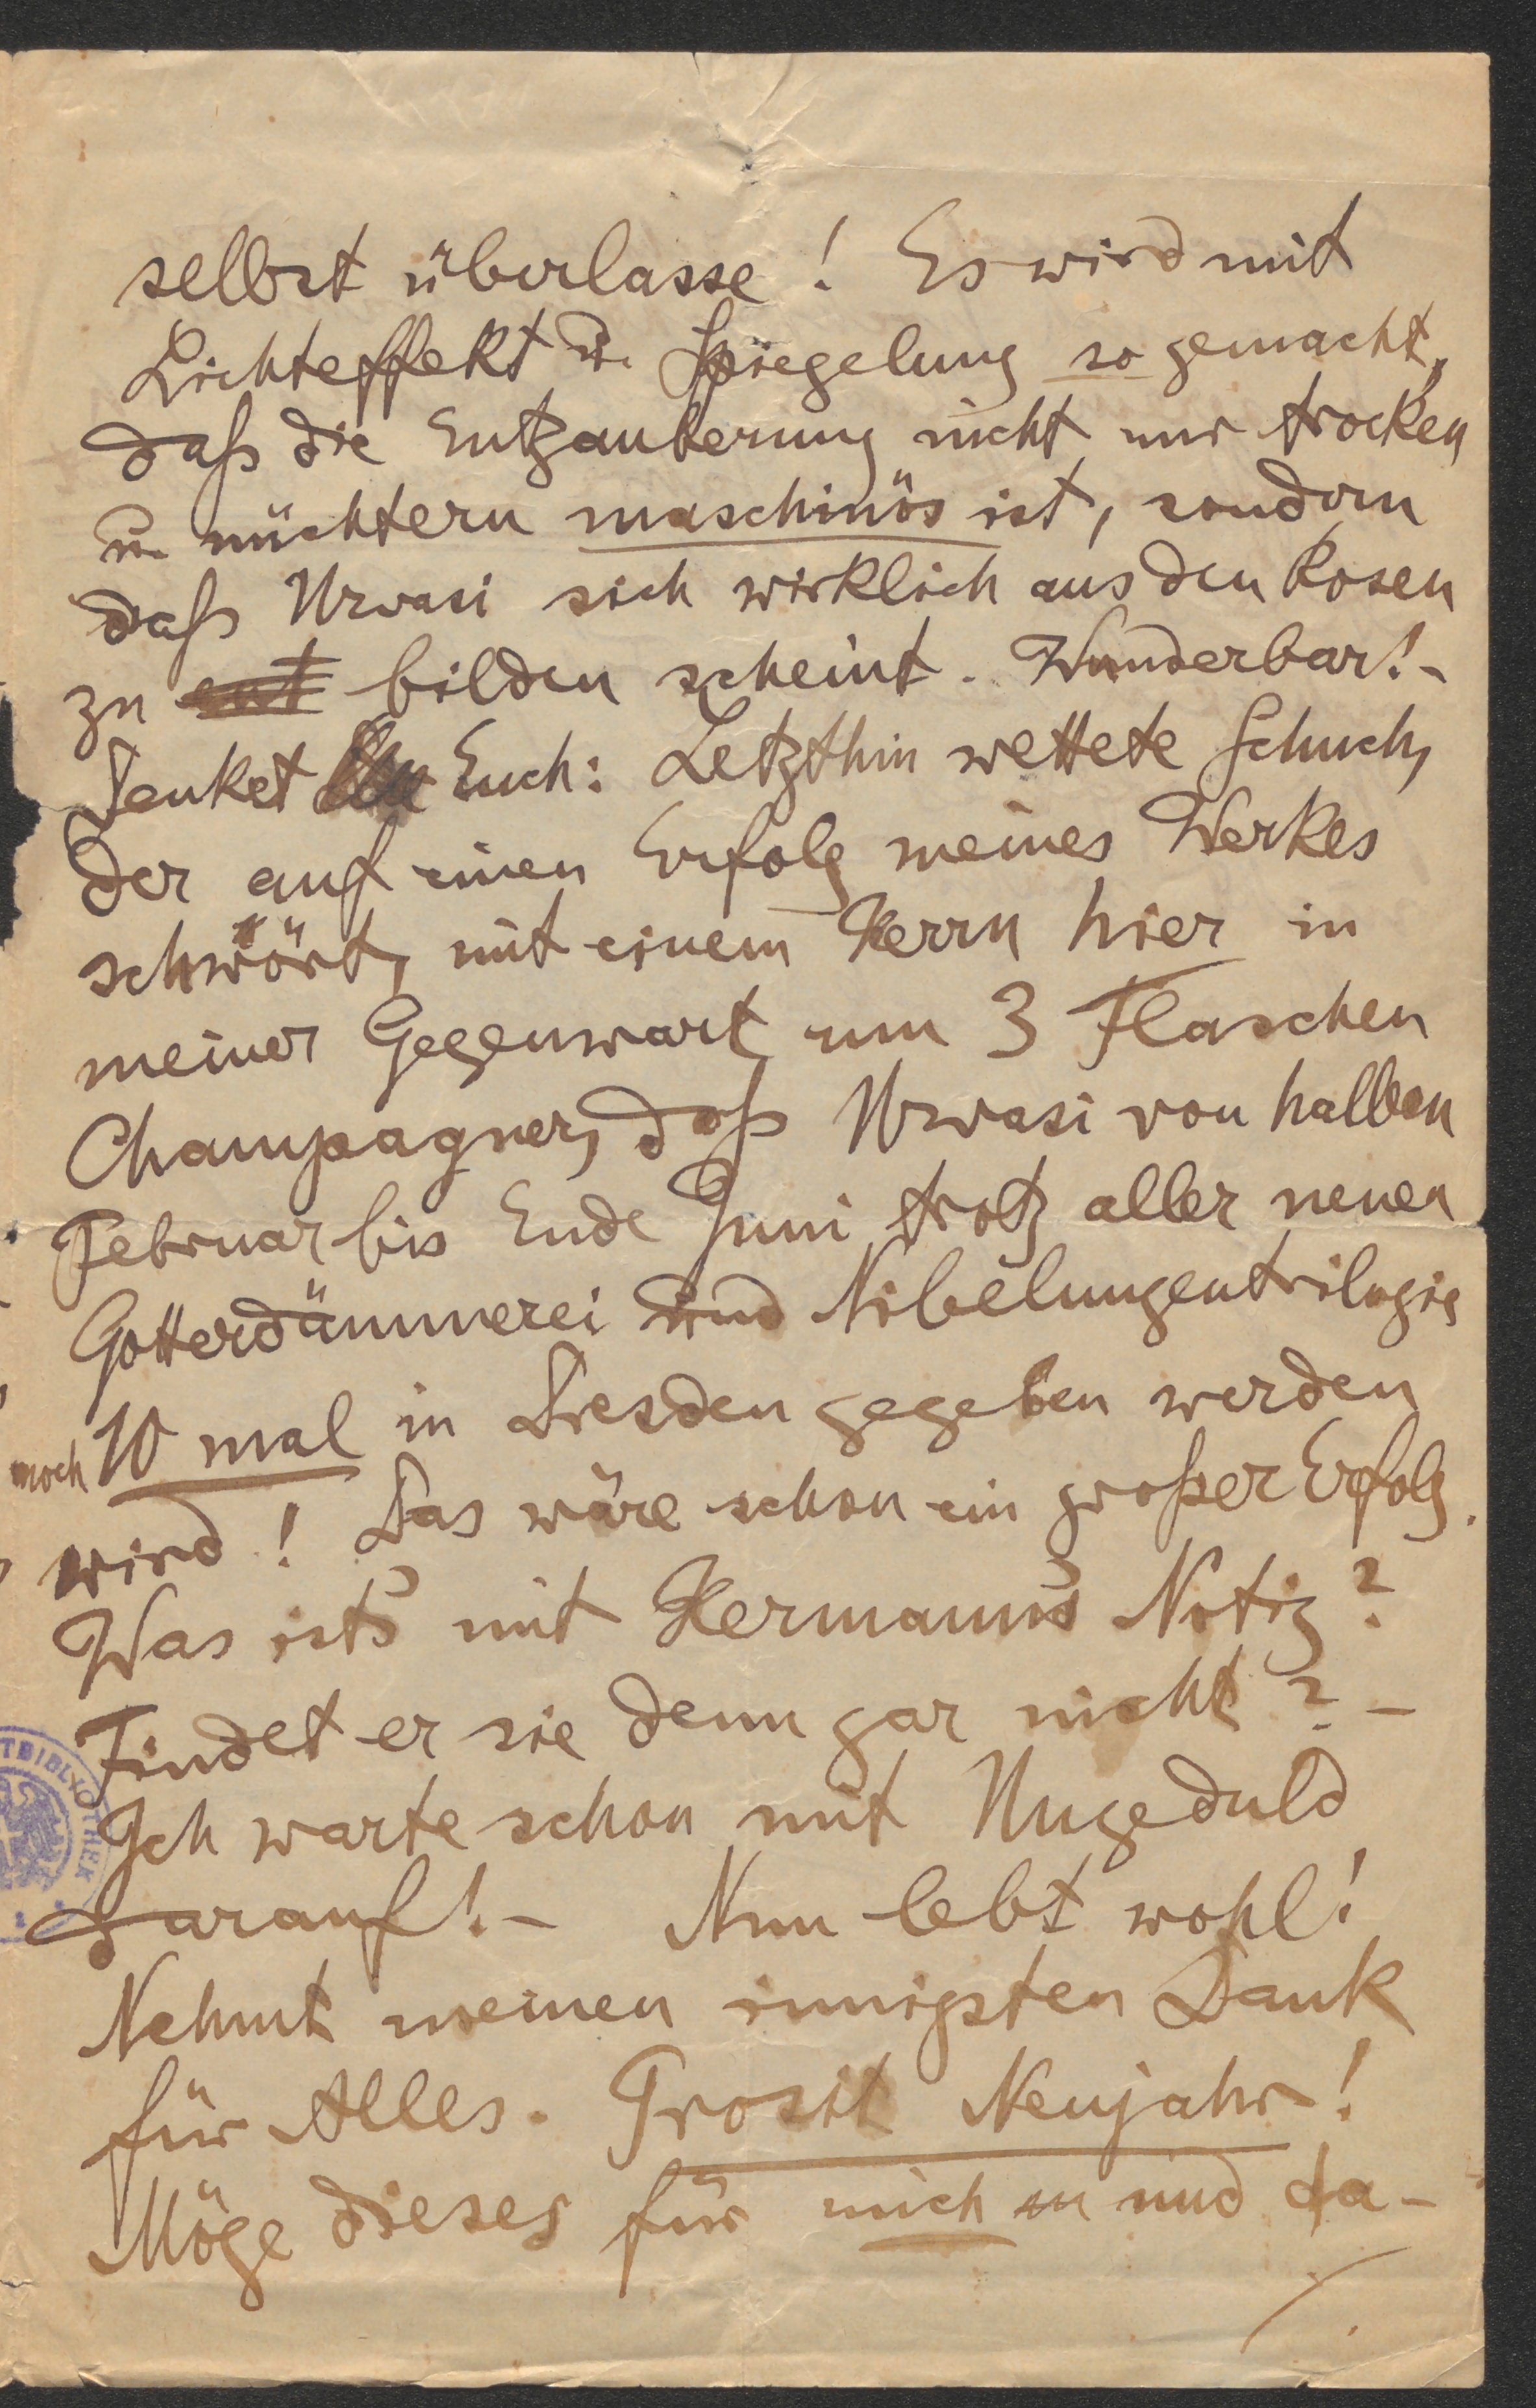 selbst überlasse! Es wird mit
Lichteffekt u. Spiegelung so gemacht,
daß die Entzauberung nicht nur trocken
u. nüchtern maschinös ist, sondern
daß Urvasi sich wirklich aus den Rosen
zu ent bilden scheint. Wunderbar! –
Denket Euch: Letzthin wettete Schuch,
der auf einen Erfolg meines Werkes
schwört, mit einem Herrn hier in
meiner Gegenwart um 3 Flaschen
Champagner, daß Urvasi von halben
Februar bis Ende Juni trotz aller neuen
Götterdämmerei und Nibelungentrilogie
noch 10 mal in Dresden gegeben werden
wird! Das wäre schon ein großer Erfolg.
Was ist's mit Hermann's Notiz?
Findet er sie denn gar nicht? –
Ich warte schon mit Ungeduld
darauf! – Nun lebt wohl!
Nehmt meinen innigsten Dank
für Alles. Prosit Neujahr!
Möge dieses für mich und da-
TBIBLIOTHEK